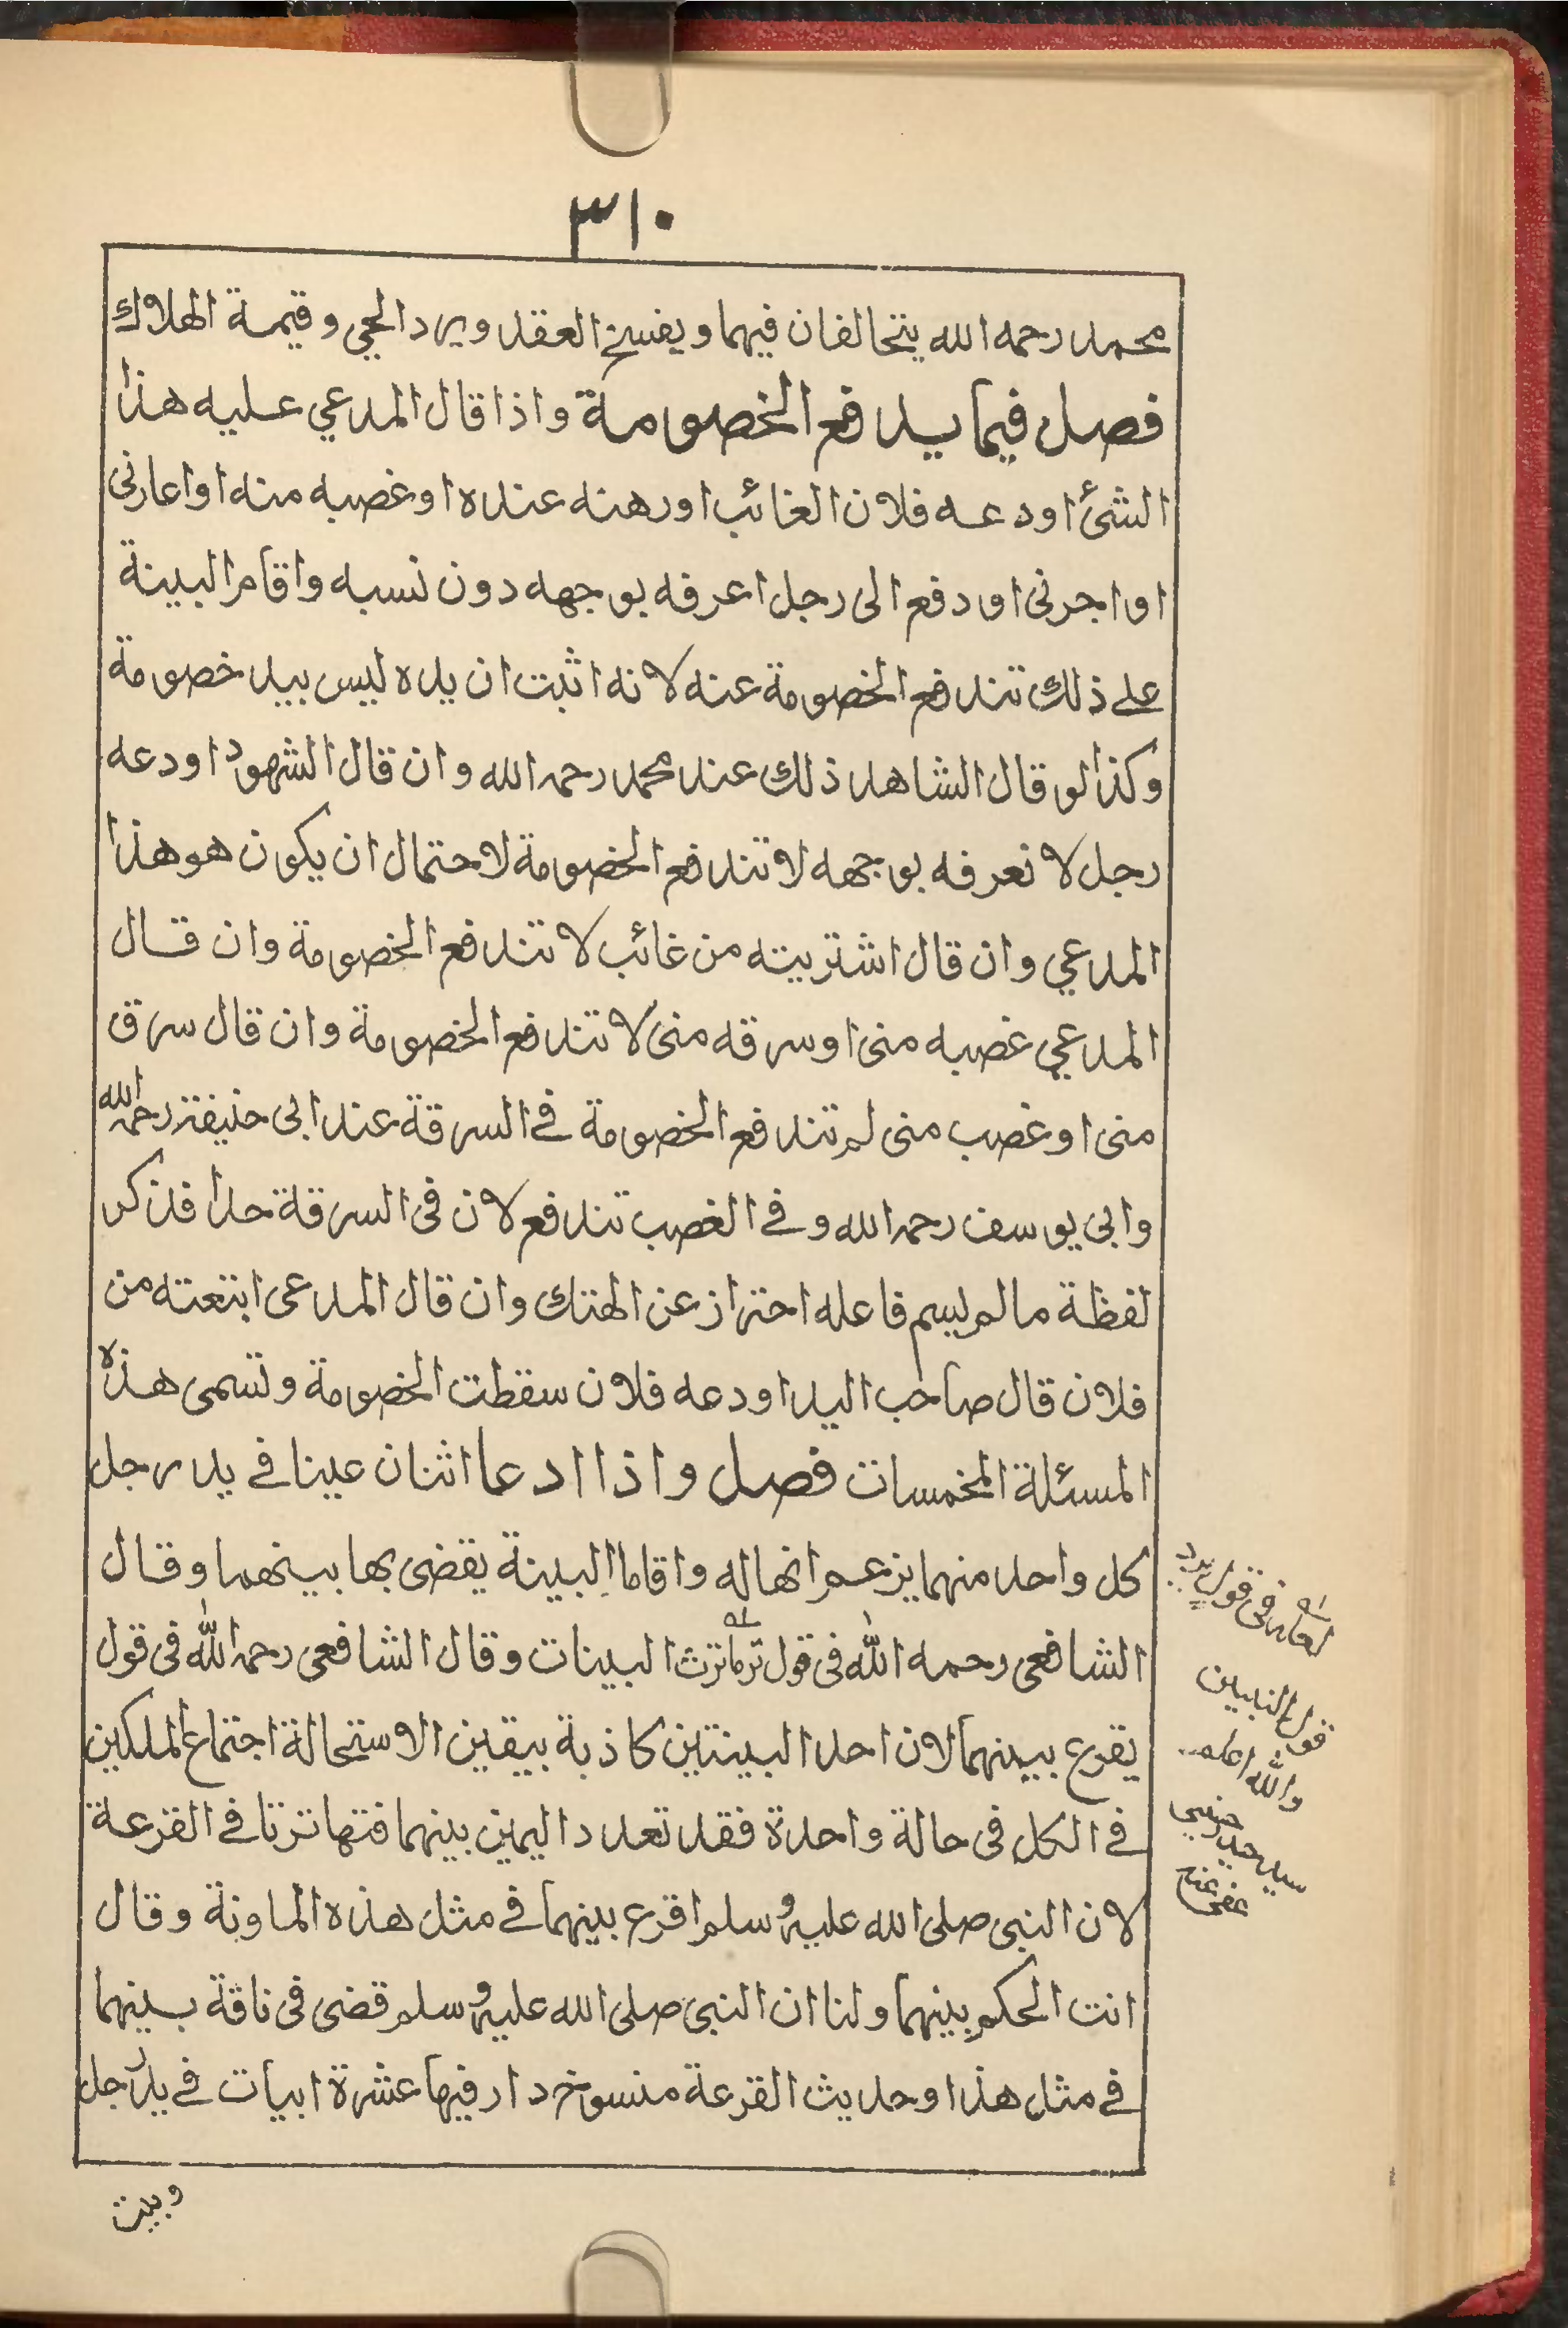 ٣١٠
محمد رحمه الله يتحالفان فيهما ويفسخ العقد ويرد الحي وقيمة الهلاك
فصل فيما يدفع الخصومة واذا قال المدعي عليه هذا
الشئ اودعه فلان الغائب اورهنه عنده اوغصبه منه اواعارنى
اواجرنى اودفع الى رجل اعرفه بوجهه دون نسبه واقام البينة
على ذلك تندفع الخصومة عنه لانه اثبت ان يده ليس بيد خصومة
وكذا لو قال الشاهد ذلك عند محمد رحمه الله وان قال الشهود اودعه
رجل لا نعرفه بوجهه لا تندفع الخصومة لاحتمال ان يكون هو هذا
المدعي وان قال اشتريته من غائب لا تندفع الخصومة وان قال
المدعي غصبه منى اوسرقه منى لا تندفع الخصومة وان قال سرق
منى اوغصب منى لم تندفع الخصومة في السرقة عند ابى حنيفة رحمه الله
وابى يوسف رحمه الله وفي الغصب تندفع لان فى السرقة حدا فذكر
لفظة مالم يسم فاعله احتراز عن الهتك وان قال المدعى ابتعته من
فلان قال صاحب اليد اودعه فلان سقطت الخصومة وتسمى هذه
المسئلة المخمسات فصل واذا ادعا اثنان عينا في يد رجل
كل واحد منهما يزعم انها له واقاما البينة يقضى بها بينهما وقال
الشافعى رحمه الله فى قول ترماترث البينات وقال الشافعى رحمه الله فى قول
يقرع بينهما لان احد البينتين كاذبة بيقين الاستحالة اجتماع الملكين
في الكل فى حالة واحدة فقد تعدد اليمين بينهما فتهاترتا في القرعة
لان النبى صلى الله عليه وسلم اقرع بينهما في مثل هذه الماونة وقال
انت الحكم بينهما ولنا ان النبى صلى الله عليه وسلم قضى فى ناقة بينهما
في مثل هذا وحديث القرعة منسوخ دار فيها عشرة ابيات في يد رجل
وبيت
لعله فى قول
قول النبيين
والله اعلم
سيد
عفى عنه